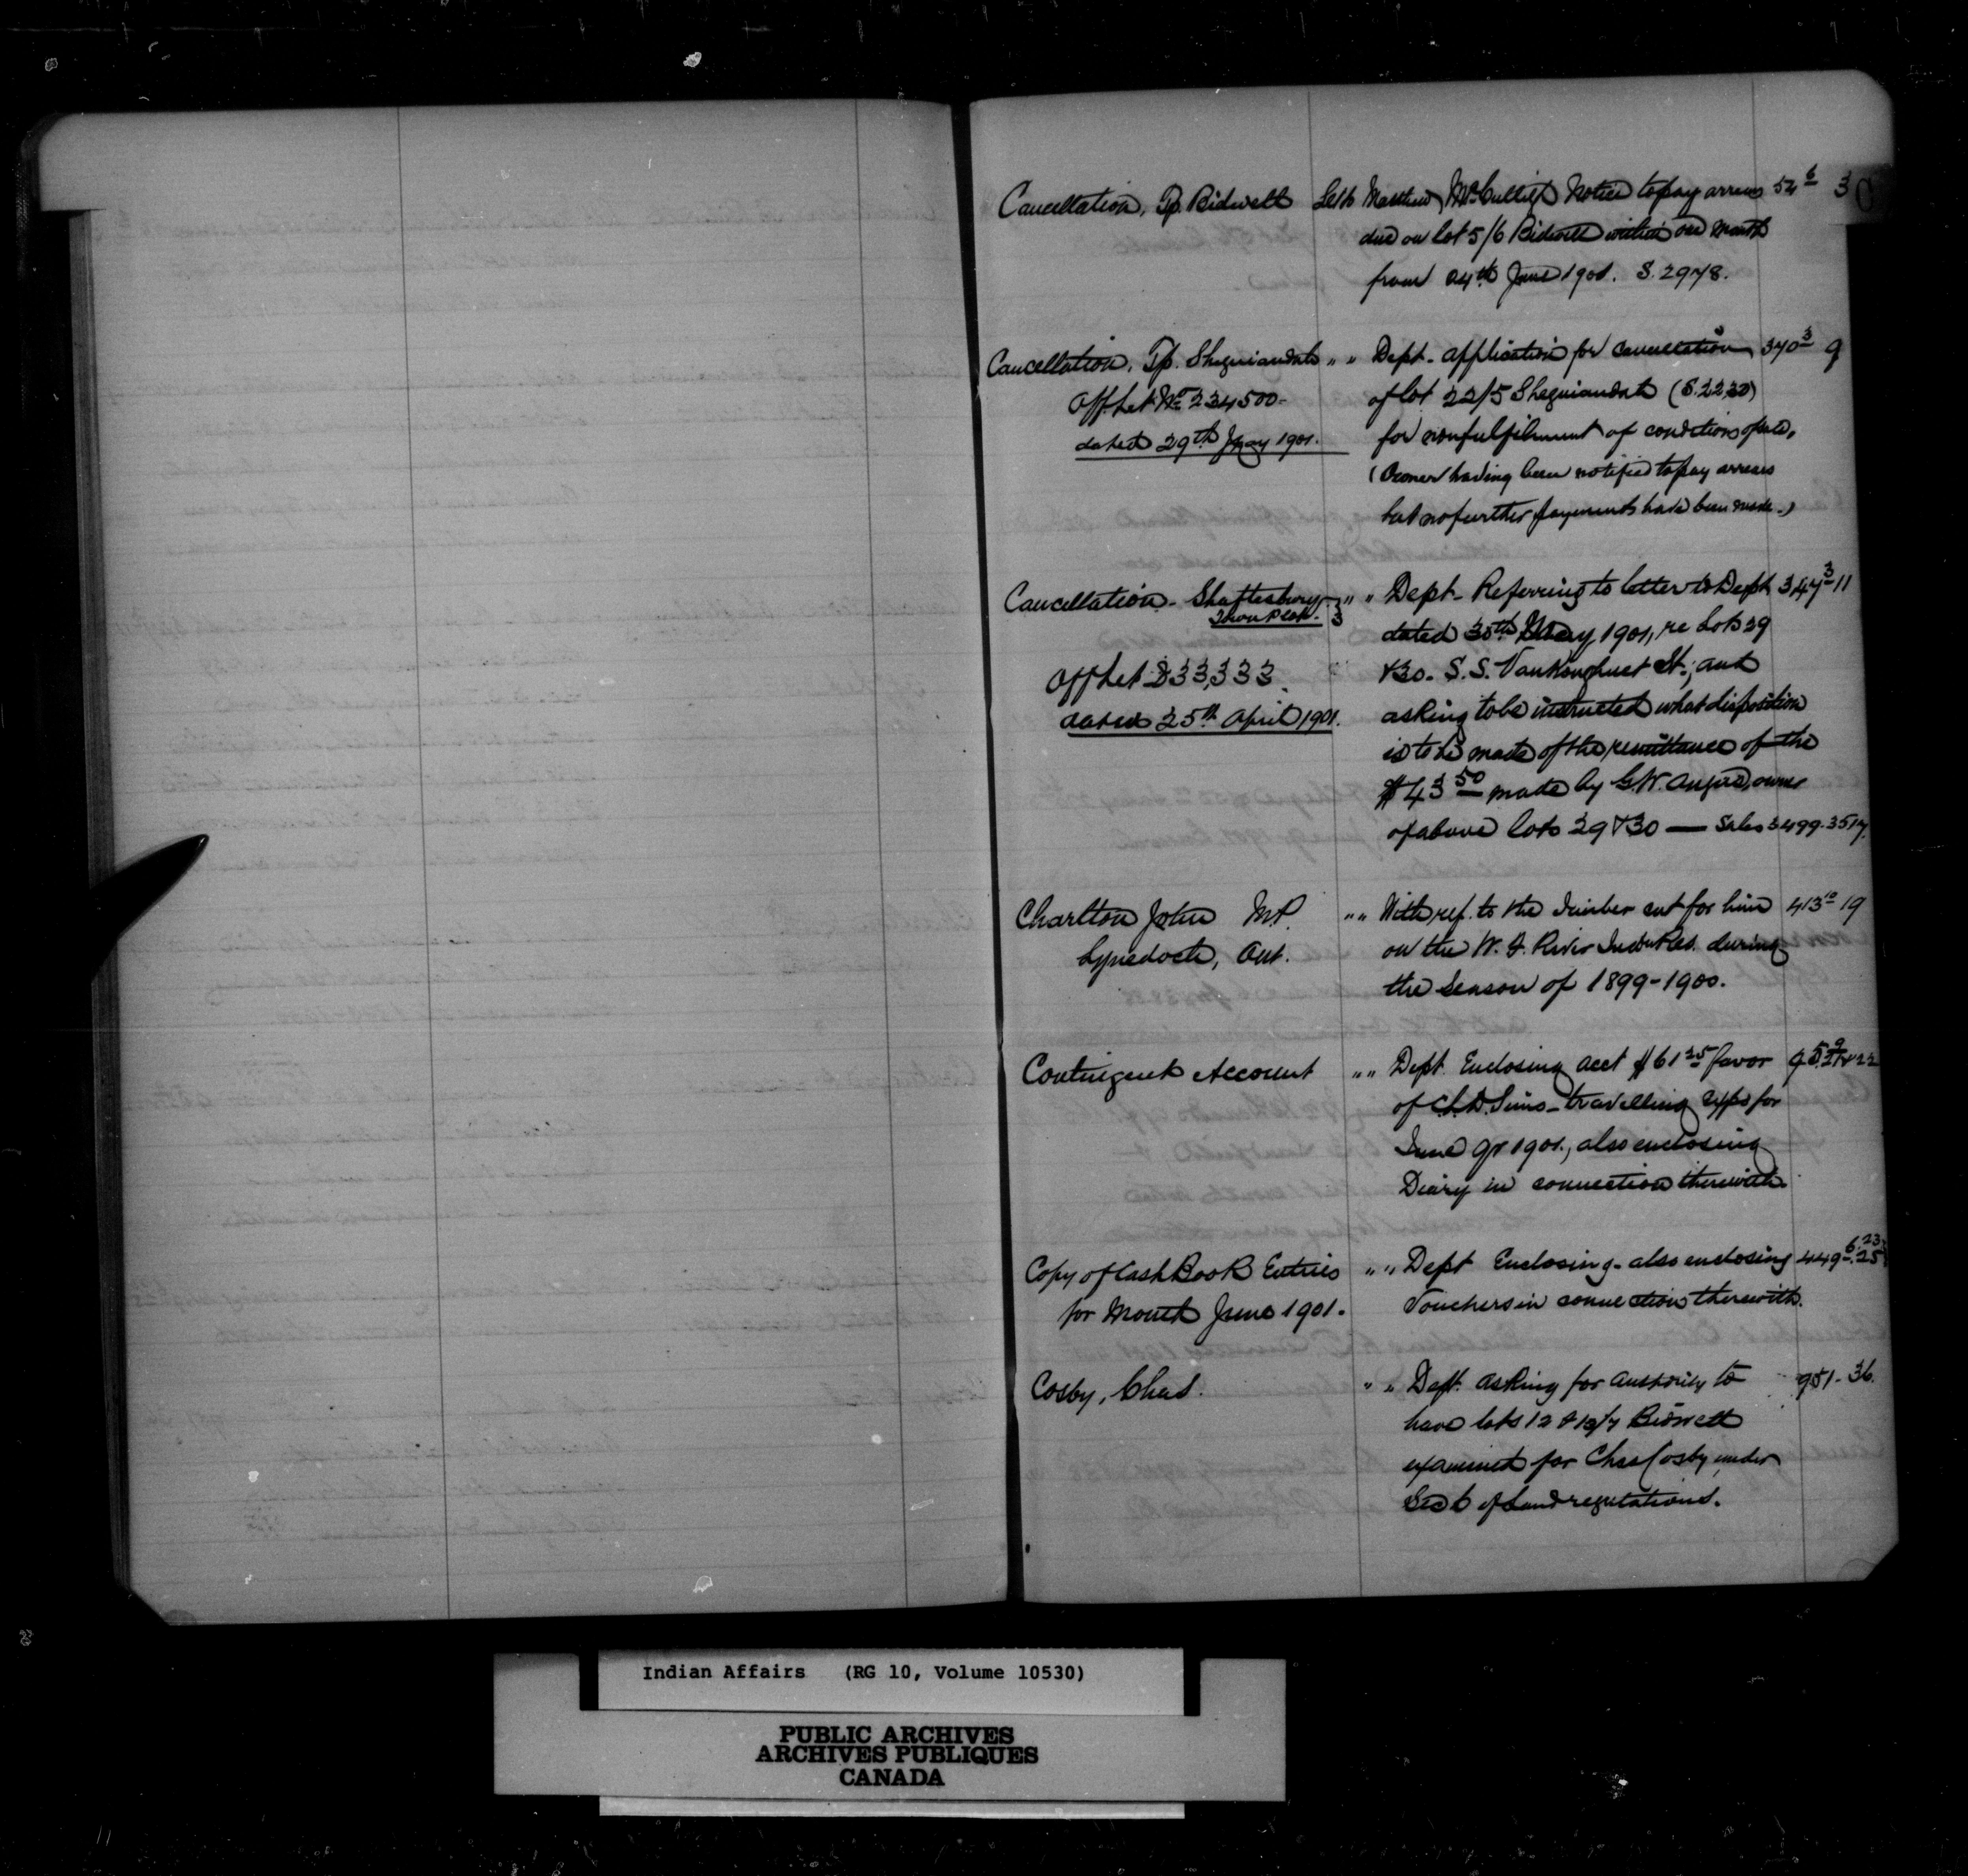 C
Cancellation, Tp. Bidwell Let to Matthew McCulligh Notice to pay arrears 54 6 3
due on lot 5/6 Bidwell within one month
from 24th June 1901. S. 2978.
Cancellation, Tp. Sheguiandah " " Dept. application for cancellation 340 3 9
Off. Let. No 234500 - of lot 22/5 Sheguiandah (S. 2230)
dated 29th May 1901. for nonfulfilment of conditions of sale,
(Owner having been notified to pay arrears
but no further payments have been made.)
Cancellation - Shaftesbury " " Dept - Referring to letter to Dept 347 3 11
Town Plot. 3 dated 30th May 1901, re Lots 29
Off Let 233,333 &30. S.S. Vankoughnet St., and
dated 25th April 1901. asking to be instructed what disposition
is to be made of the remittance of the
$43 50 made by G.W. owner
of above lots 29 & 30 — Sales 3499.3517.
Charlton John M.P. " " With ref. to the timber cut for him 413 10 19
Lynedoch, Ont. on the W. F. River Indn Res. during
the season of 1899-1900.
Contingent Account " " Dept. Enclosing acct $61 25 favor 22
of C.L.D. Sims - travelling exps for
June qr 1901, also enclosing
Diary in connection therewith.
Copy of Cash Book Entries " " Dept Enclosing - also enclosing 449 6.23. 25
for Month June 1901. Vouchers in connection therewith.
Cosby, Chas. " " Dept. asking for authority to 951 - 36.
have lots 12 & 13/7 Bidwell
examined for Chas Cosby under
Sec 6 of Land regulations.
Indian Affairs (RG 10, Volume 10530)
PUBLIC ARCHIVES
ARCHIVES PUBLIQUES
CANADA